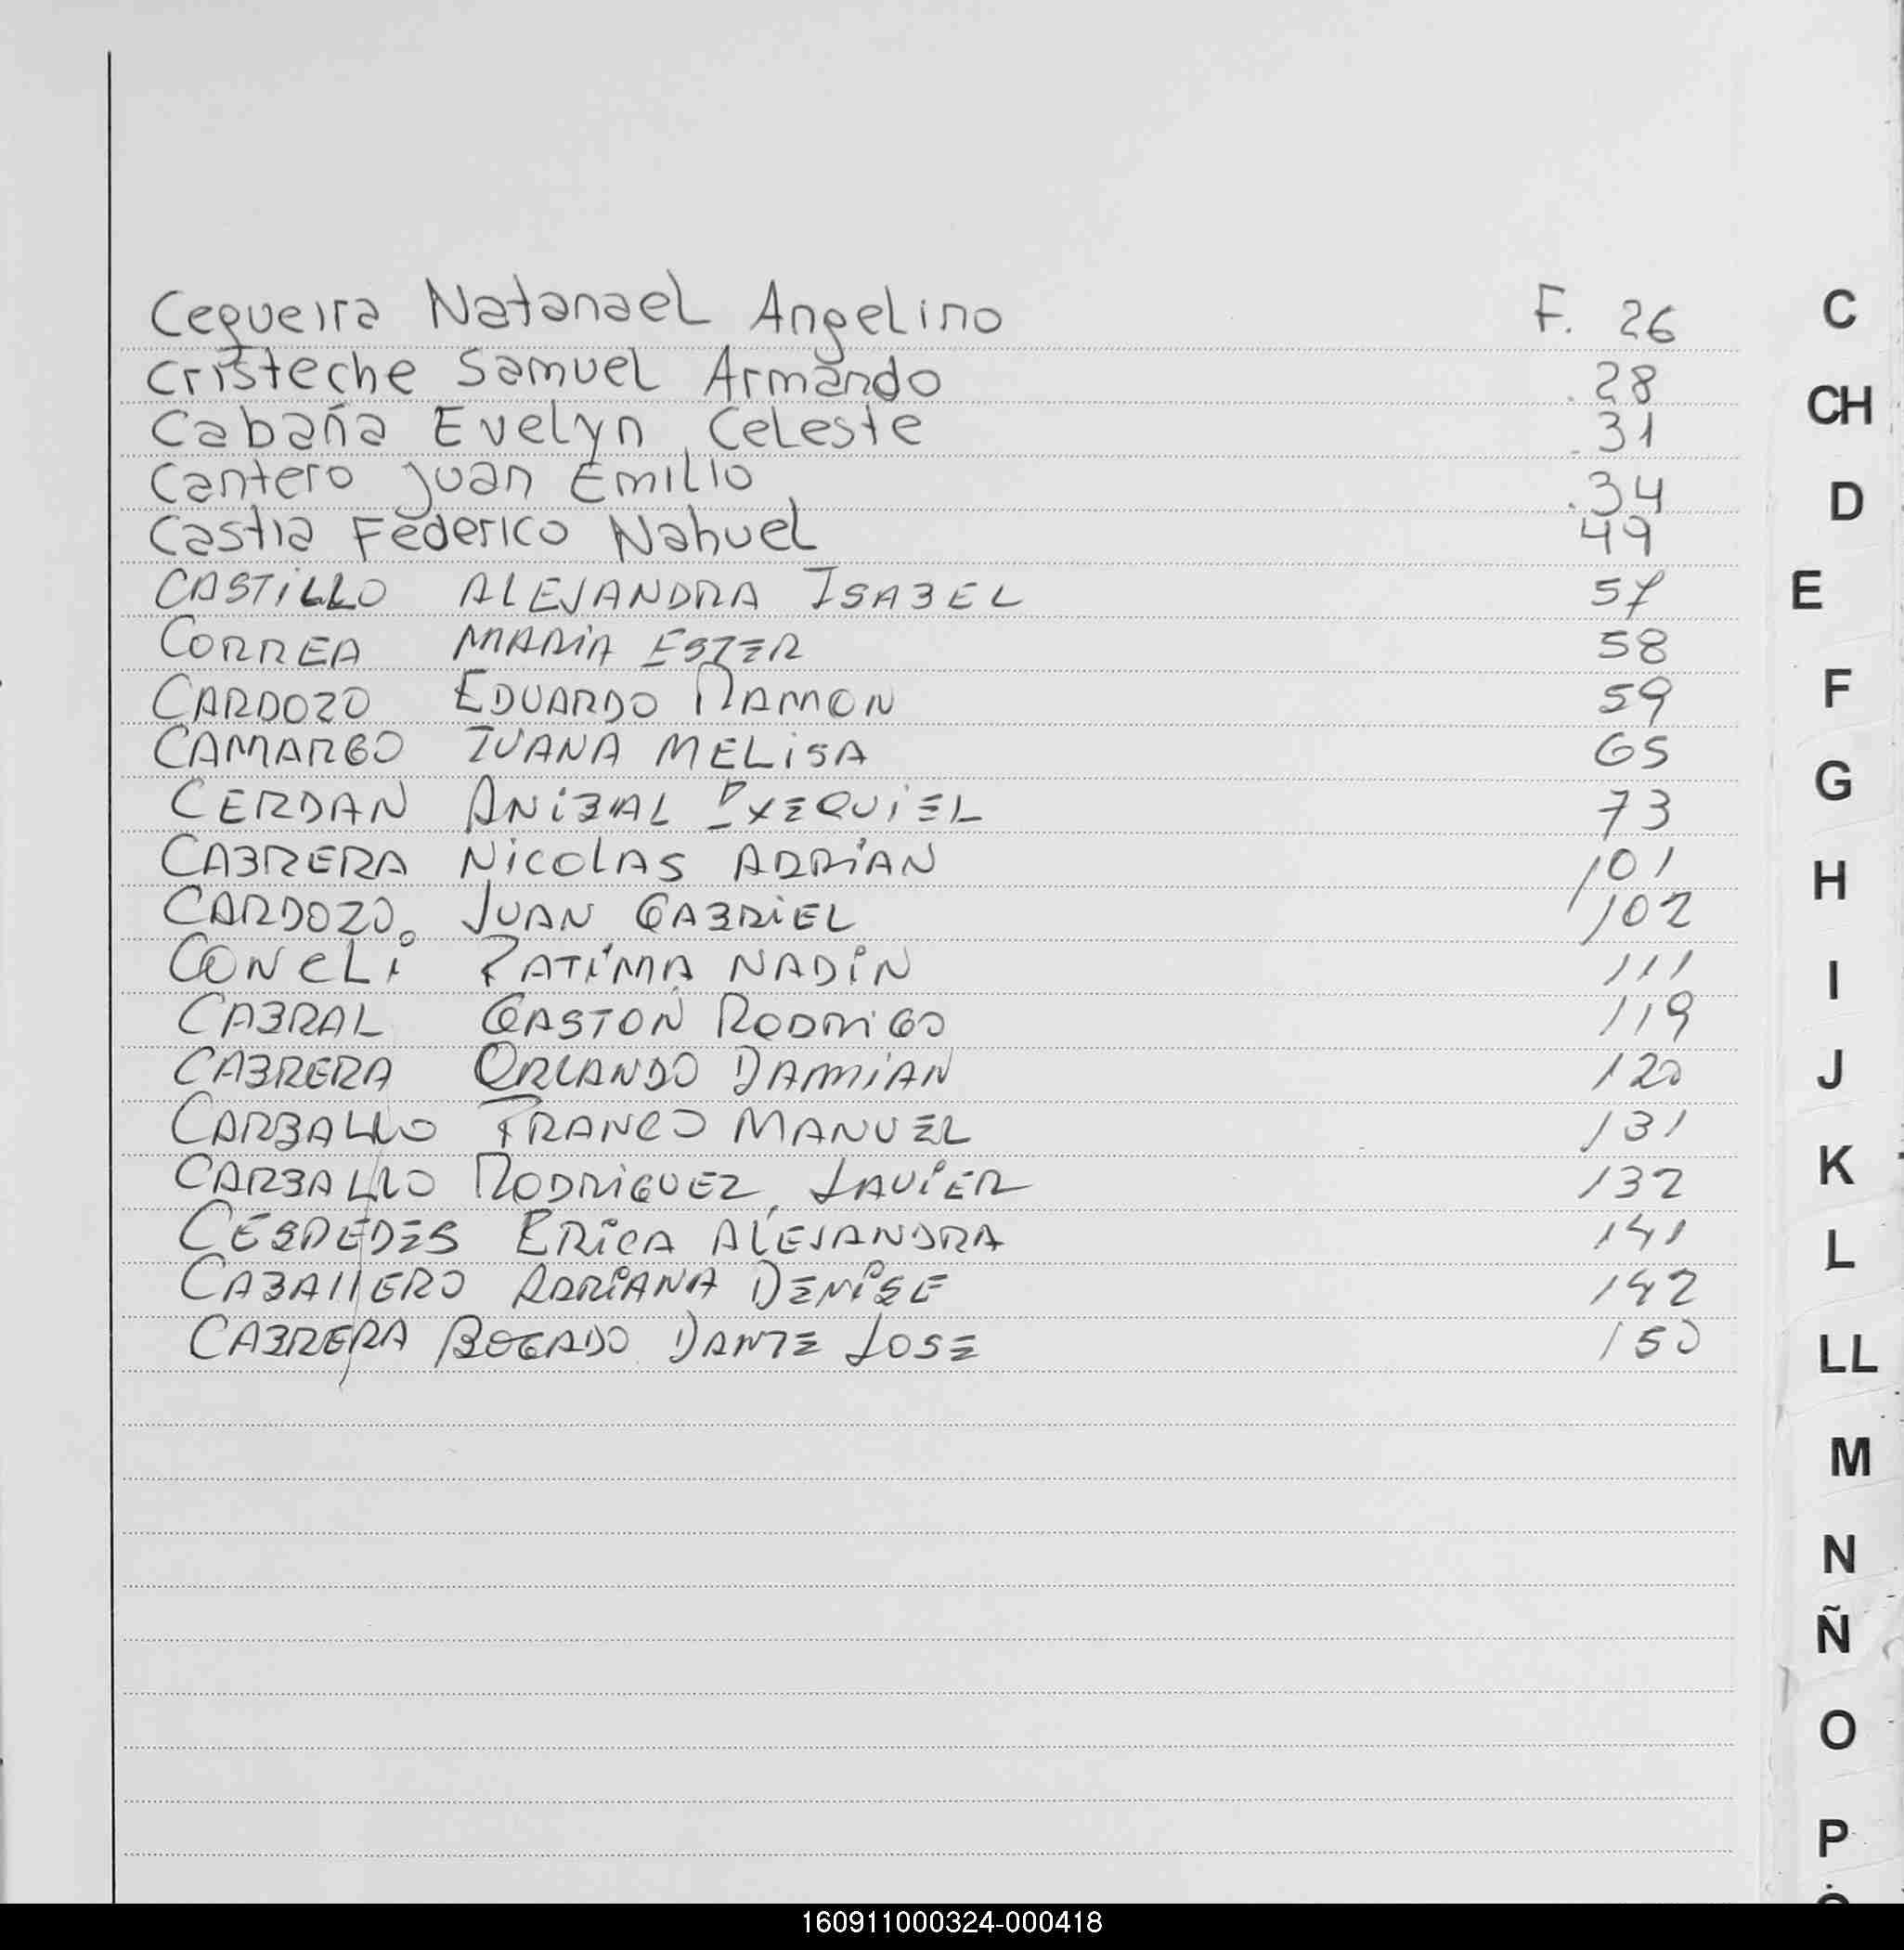 Cequeira Natanael Angelino F. 26
Cristeche Samuel Armando 28
Cabaña Evelyn Celeste 31
Cantero Juan Emilio 34
Castia Federico Nahuel 49
CASTiLLO ALEJANDRA ISABEL 57
CORREA MARiA ESTER 58
CARDOZO EDUARDO RAMON 59
CAMARGO IVANA MELiSA 65
CERDAN ANiBAL EXEQUiEL 73
CABRERA NiCOLAS ADRiAN 101
CARDOZO JUAN GABRiEL 102
CONCLi FATiMA NADiN 111
CABRAL GASTON RODRiGO 119
CABRERA ORLANDO DAMiAN 120
CARBALLO FRANCO MANUEL 131
CARBALLO RODRiGUEZ, JAViER 132
CESPEDES ERiCA ALEJANDRA 141
CABALLERO ADRiANA DENiSE 142
CABRERA BOGADO DANTE JOSE 150
C
CH
D
E
F
G
H
I
J
K
L
LL
M
N
Ñ
O
P
160911000324-000418